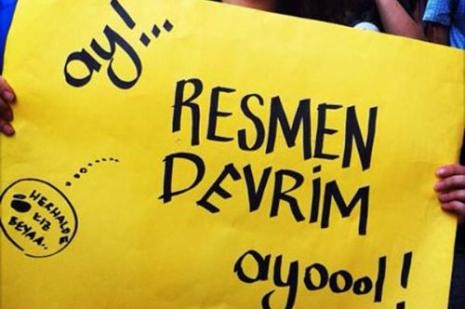 ay!...
RESMEN
DEVRİM
ayoool!
HERHALDE
KIZ
BEYAA..